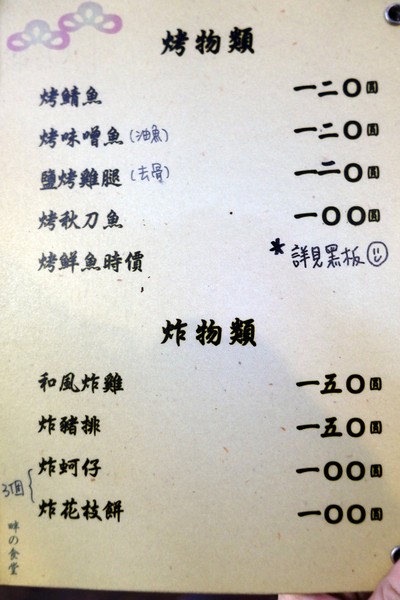 烤物類
烤鯖魚 一二〇圓
烤味噌魚(油魚) 一二〇圓
鹽烤雞腿(去骨) 一二〇圓
烤秋刀魚 一〇〇圓
烤鮮魚時價 *詳見黑板
炸物類
和風炸雞 一五〇圓
炸豬排 一五〇圓
炸蚵仔 一〇〇圓
3個
炸花枝餅 一〇〇圓
畔の食堂